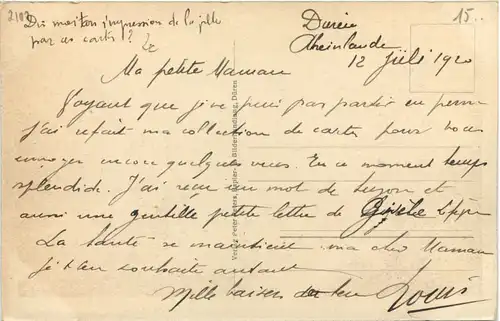 2102
Dis moi ton impression de la ville
par ces cartes ?
15..
Düren
Rheinlande
12 Jüli 1920
Ma petite Maman
Voyant que je ne puis pas partir en perm
j'ai refait ma collection de cartes pour vous
envoyer encore quelques vues. En ce moment temps
splendide. J'ai reçu un mot de Suzon et
aussi une gentille petite lettre de Gisèle
La santé se maintient ma chère Maman
je t'en souhaite autant
Mille baisers de ton Louis
Verlag Peter Papier- & Bilderhandlung, Düren